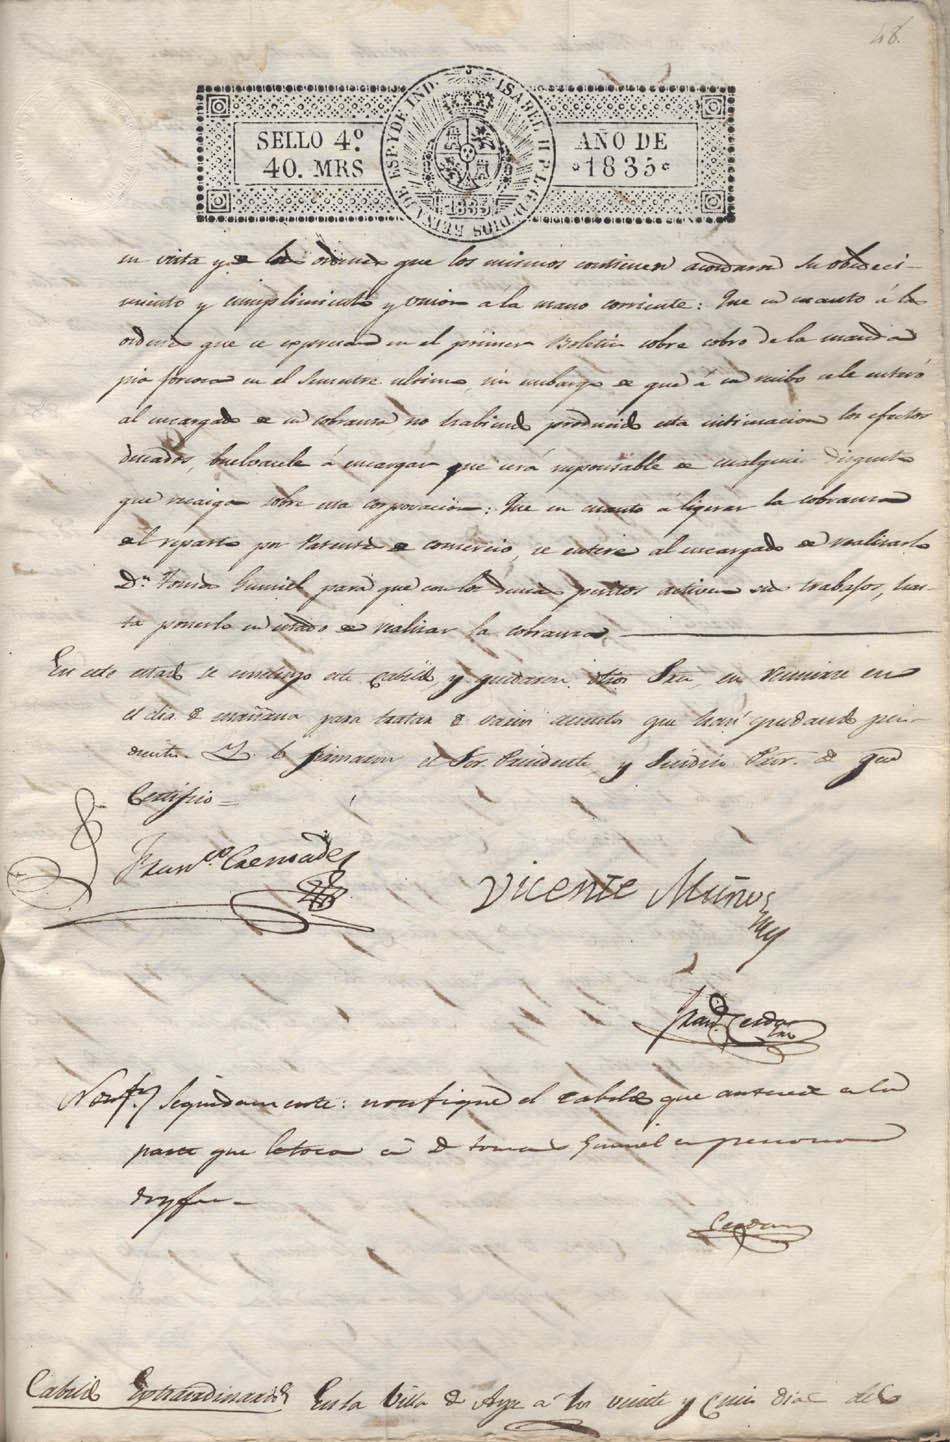 48.
SELLO 4º.
40. MRS
AÑO DE
1835
ISABEL II P. L. G. D. DIOS REINA DE ESP. Y DE IND.
1835
en vista y de las ordenes que los mismos contienen acordaron su obedeci-
miento y cumplimiento y union á la mano corriente: Que en cuanto á la
orden que se expresa en el primer Boletin sobre cobro de la manda
pia forzosa en el Semestre ultimo, sin embargo de que á su recibo se le enteró
al encargado de su cobranza, no habiendo producido esta intimacion los efectos
deseados, buelvasele á encargar que será responsable de cualquier disgusto
que recaiga sobre esta corporacion: Que en cuanto a ligerar la cobranza
del reparto por Patente de comercio, se entere al encargado de realizarlo
Dn. Tomas Gumiel para que con los demas peritos activen sus trabajos, has-
ta ponerlo en estado de realizar la cobranza.
En este estado se concluyó este Cabildo, y quedaron dhos Sres. en reunirse en
el dia de mañana para tratar de varios asuntos que han quedado pen-
dientes. Y lo firmaron el Sor. Presidente, y Sindico Pror. de que
Certifico =
Franco. Cremades
Vicente Muños
Cerdan
Notifn. Seguidamente: notifiqué el cabildo que antecede en la
parte que le toca a D Tomas Gumiel en persona
doy fee =
Cerdan
Cabildo Extraordinario En la Villa de Aspe á los veinte y seis dias del